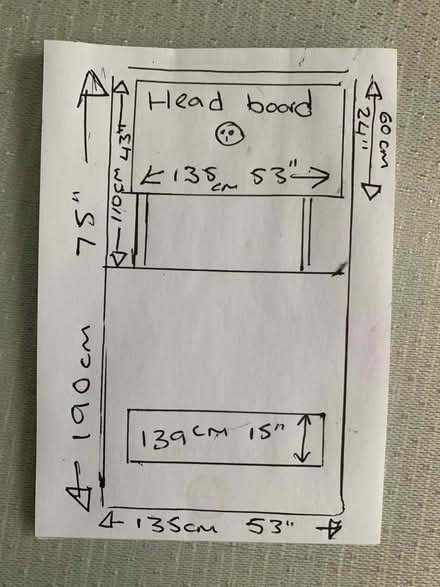 Head board
135cm 53"
110cm 43"
60cm
24"
75"
190cm
139cm 15"
135cm 53"